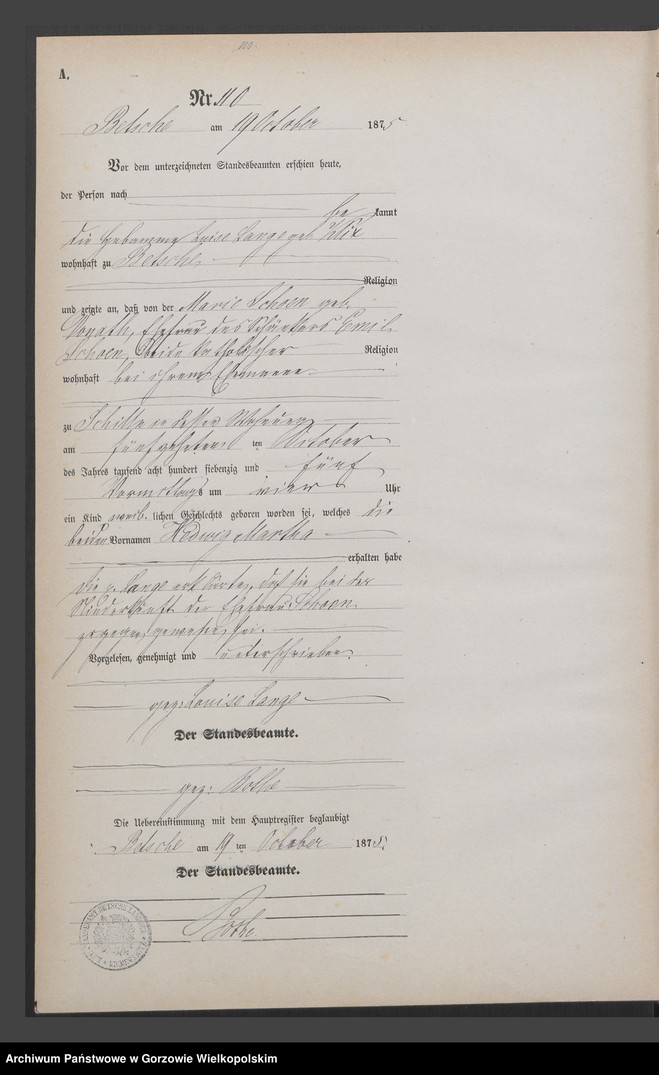 110.
A.
Nr. 110
Betsche am 19 October 1875
Vor dem unterzeichneten Standesbeamten erschien heute,
der Person nach
be kannt
die Hebamme Luise Lange geb.
wohnhaft zu Betsche
Religion
und zeigte an, daß von der Marie Schoen geb.
Ehefrau des Emil
Schoen, beide katholischer Religion
wohnhaft bei ihrem Ehemanne
zu in dessen Wohnung
am fünfzehnten ten October
des Jahres tausend acht hundert siebenzig und fünf
Vormittags um vier Uhr
ein Kind weib lichen Geschlechts geboren worden sei, welches die
beiden Vornamen Hedwig Martha
erhalten habe
Die p. Lange erklärte, daß sie bei der
Niederkunft der Ehefrau Schoen
zugegen gewesen sei.
Vorgelesen, genehmigt und unterschrieben
gez: Louise Lange
Der Standesbeamte.
gez:
Die Uebereinstimmung mit dem Hauptregister beglaubigt
Betsche am 19 ten October 1875.
Der Standesbeamte.
Archiwum Państwowe w Gorzowie Wielkopolskim